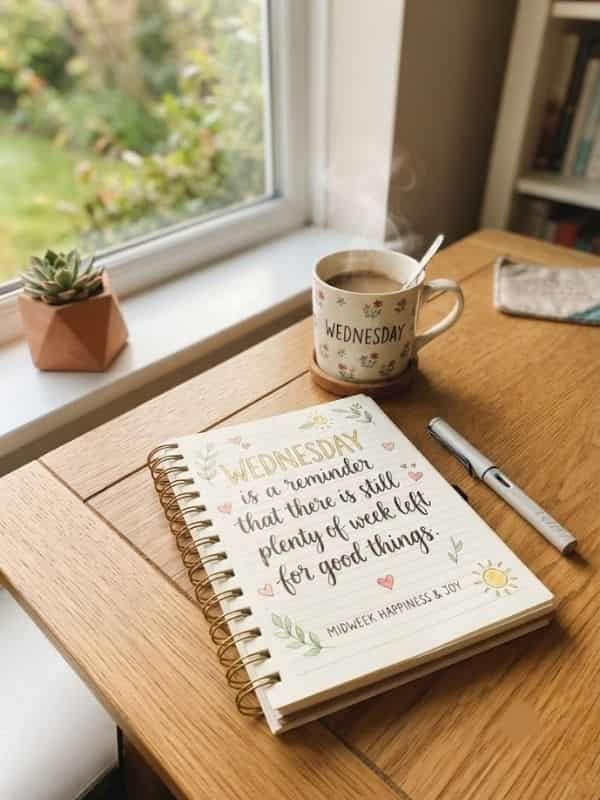 WEDNESDAY
WEDNESDAY
is a reminder
that there is still
plenty of week left
for good things.
MIDWEEK HAPPINESS & JOY